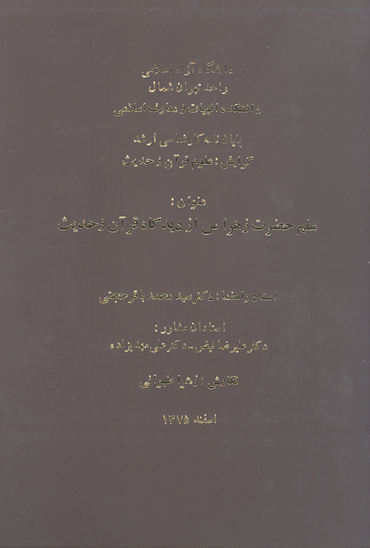 دانشگاه آزاد اسلامی
واحد تهران شمال
دانشکده الهیات و معارف اسلامی
پایان نامه کارشناسی ارشد
گرایش : علوم قرآن و حدیث
عنوان :
علم حضرت زهرا س از دیدگاه قرآن و حدیث
استاد راهنما : دکتر سید محمد باقر حجتی
استادان مشاور :
دکتر علیرضا فیض - دکتر علی مهدیزاده
نگارش : زهرا
اسفند ۱۳۷۵